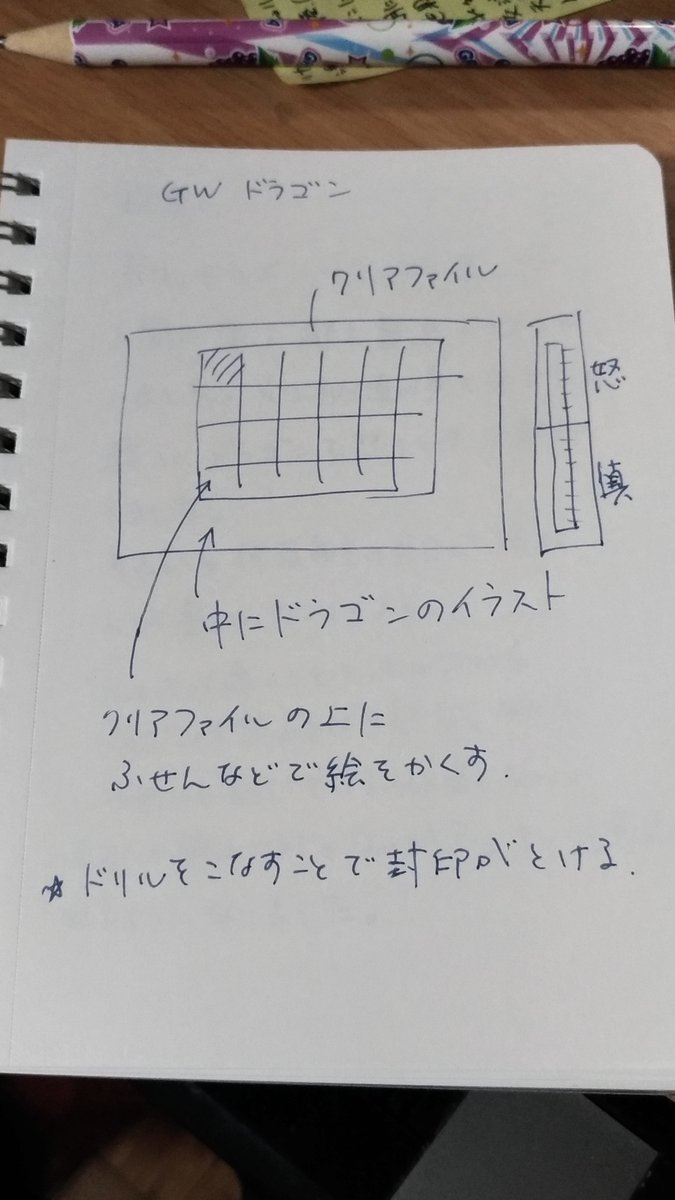 GW ドラゴン
クリアファイル
怒
慎
中にドラゴンのイラスト
クリアファイルの上に
ふせんなどで絵をかくす.
☆ ドリルをこなすことで封印がとける.